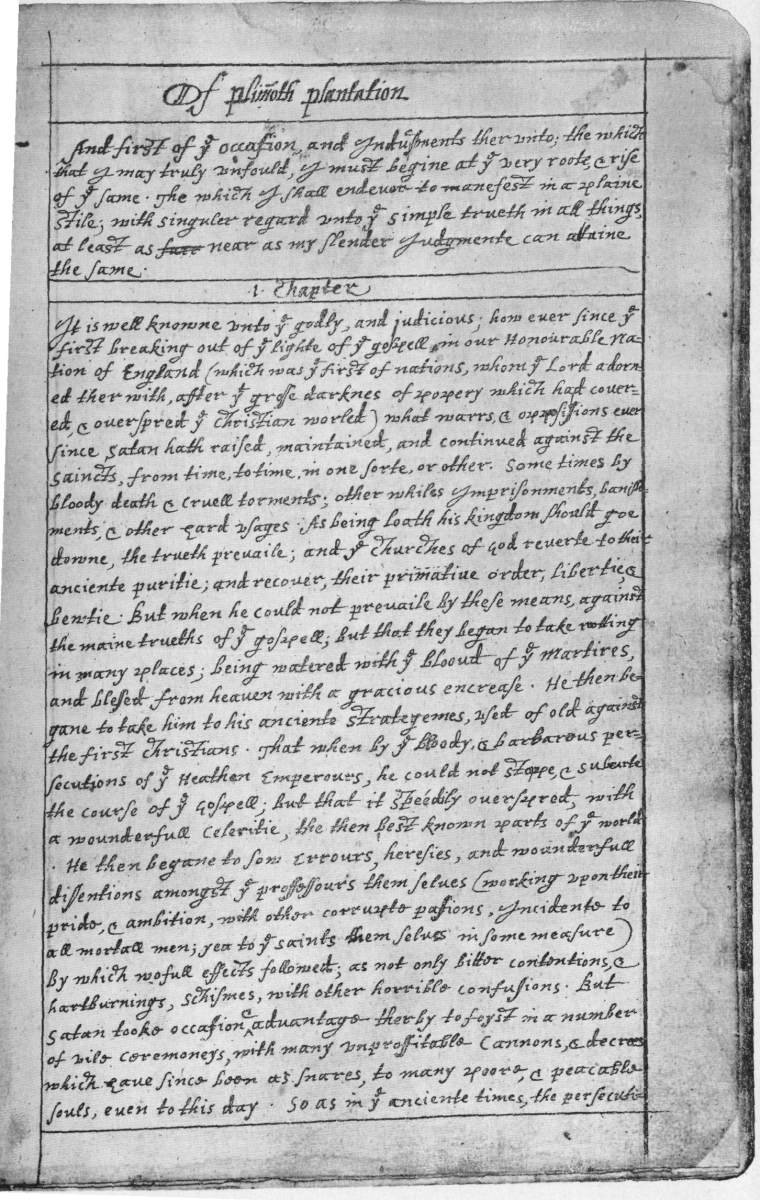 Of plim̃oth plantation
And first of yͤ occasion, and Indusments ther vnto; the which
that I may truly vnfould, I must begine at yͤ very roote, & rise
of yͤ same. The which I shall endevor to manefest in a plaine
stile; with singuler regard vnto yͤ simple trueth in all things,
at least as farr near as my slender Judgmente can attaine
the same.
1. Chapter
It is well knowne vnto yͤ godly, and judicious; how ever since yͤ
first breaking out of yͤ lighte of yͤ gospell, in our Honourable Na=
tion of England (which was yͤ first of nations, whom yͤ Lord adorn=
ed ther with, after yͤ grosse darknes of popery which had cover=
ed, & overspred yͤ christian worled) what warrs, & oppossisions ever
since Satan hath raised, maintained, and continued against the
saincts, from time, to time, in one sorte, or other. Some times by
bloody death & cruell torments; other whiles Imprisonments, banish=
ments, & other hard vsages. As being loath his kingdom should goe
downe, the trueth prevaile; and yͤ Churches of God reverte to their
anciente puritie; and recover, their prim̃ative order, libertie, &
bewtie. But when he could not prevaile by these means, against
the maine trueths of yͤ gospell; but that they began to take rotting
in many places; being watered with yͤ blooud of yͤ martires,
and blessed from heaven with a gracious encrease. He then be=
gane to take him to his anciente strategemes, vsed of old against
the first christians. That when by yͤ bloody, & barbarous per=
secutions of yͤ Heathen Emperours, he could not stoppe, & subverte
the course of yͤ Gospell; but that it speedily overspred, with
a wounderfull celeritie, the then best known parts of yͤ world
. He then begane to sow Errours, heresies, and wounderfull
dissentions amongst yͤ proffessours them selves (working vpon their
pride, & ambition, with other corrupte passions, Incidente to
all mortall men; yea to yͤ saints them selves in some measure)
by which wofull effects followed; as not only bitter contentions, &
hartburnings, schismes, with other horrible confusions. But
Satan tooke occasion & advantage therby to foyst in a number
of vile ceremoneys, with many vnproffitable Cannons, & decrees
which have since been as snares, to many poore, & peacable
souls, even to this day. So as in yͤ anciente times, the persecuti=